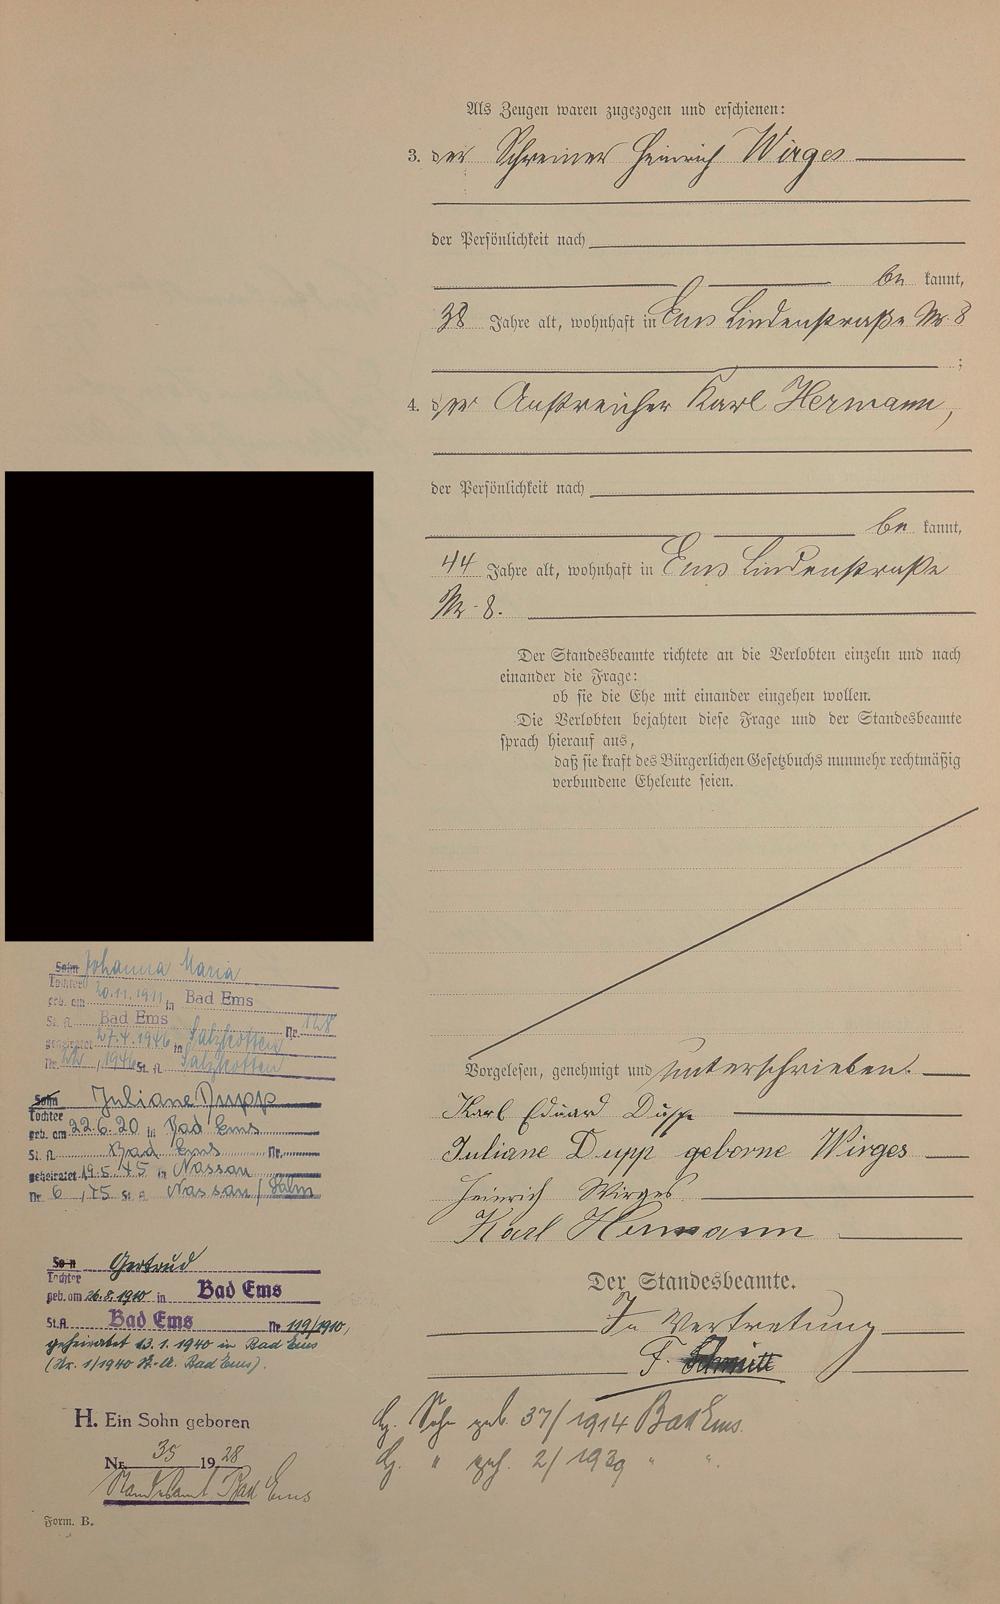 Als Zeugen waren zugezogen und erschienen:
3. der Schreiner Heinrich Wirges
der Persönlichkeit nach
be kannt,
38 Jahre alt, wohnhaft in Ems Lindenstraße Nr. 8
;
4. der Anstreicher Karl Hermann,
der Persönlichkeit nach
be kannt,
44 Jahre alt, wohnhaft in Ems Lindenstraße
Nr. 8.
Der Standesbeamte richtete an die Verlobten einzeln und nach
einander die Frage:
ob sie die Ehe mit einander eingehen wollen.
Die Verlobten bejahten diese Frage und der Standesbeamte
sprach hierauf aus,
daß sie kraft des Bürgerlichen Gesetzbuchs nunmehr rechtmäßig
verbundene Eheleute seien.
Vorgelesen, genehmigt und unterschrieben.
Karl Eduard Dupp
Juliane Dupp geborne Wirges
Heinrich Wirges
Karl Hermann
Der Standesbeamte.
In Vertretung
F. Schmitt
Sohn Johanna Maria
Tochter
geb. am 20.11.1911 in Bad Ems
St. A. Bad Ems Nr. 128
geheiratet 27.4.1946 in Salzkotten
Nr. 22, 1946 St. A. Salzkotten
Sohn Juliane Dupp
Tochter
geb. am 22.6.20 in Bad Ems
St. A. Bad Ems Nr.
geheiratet 19.5.45 in Nassau
Nr. 6, 45 St. A. Nassau/Lahn
Sohn Gertrud
Tochter
geb. am 26.8.1910 in Bad Ems
St.A. Bad Ems Nr. 119/1910,
geheiratet 13.1.1940 in Bad Ems
(Nr. 1/1940 St.-A. Bad Ems).
H. Ein Sohn geboren
Nr. 35 1928
Standesamt Bad Ems
Sohn geb. 37/1914 Bad Ems.
" geh. 2/1939 " ".
Form. B.